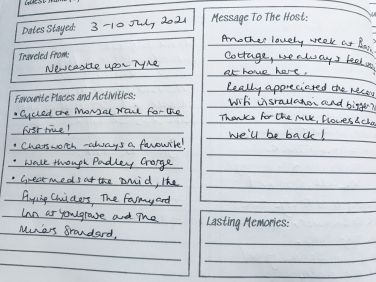 Dates Stayed: 3-10 July 2021
Traveled from:
Newcastle upon Tyne
Favourite Places and Activities:
• Cycled the Monsal Trail for the
first time!
• Chatsworth - always a favourite!
• Walk through Padley Gorge
• Great meals at the Druid, the
Flying Childers, The Farmyard
Inn at Youlgrave and The
Miners Standard.
Message To The Host:
Another lovely week at
Cottage, we always feel
at home here.
Really appreciated the
Wifi installation and bigger
Thanks for the milk, flowers &
We'll be back!
Lasting Memories: